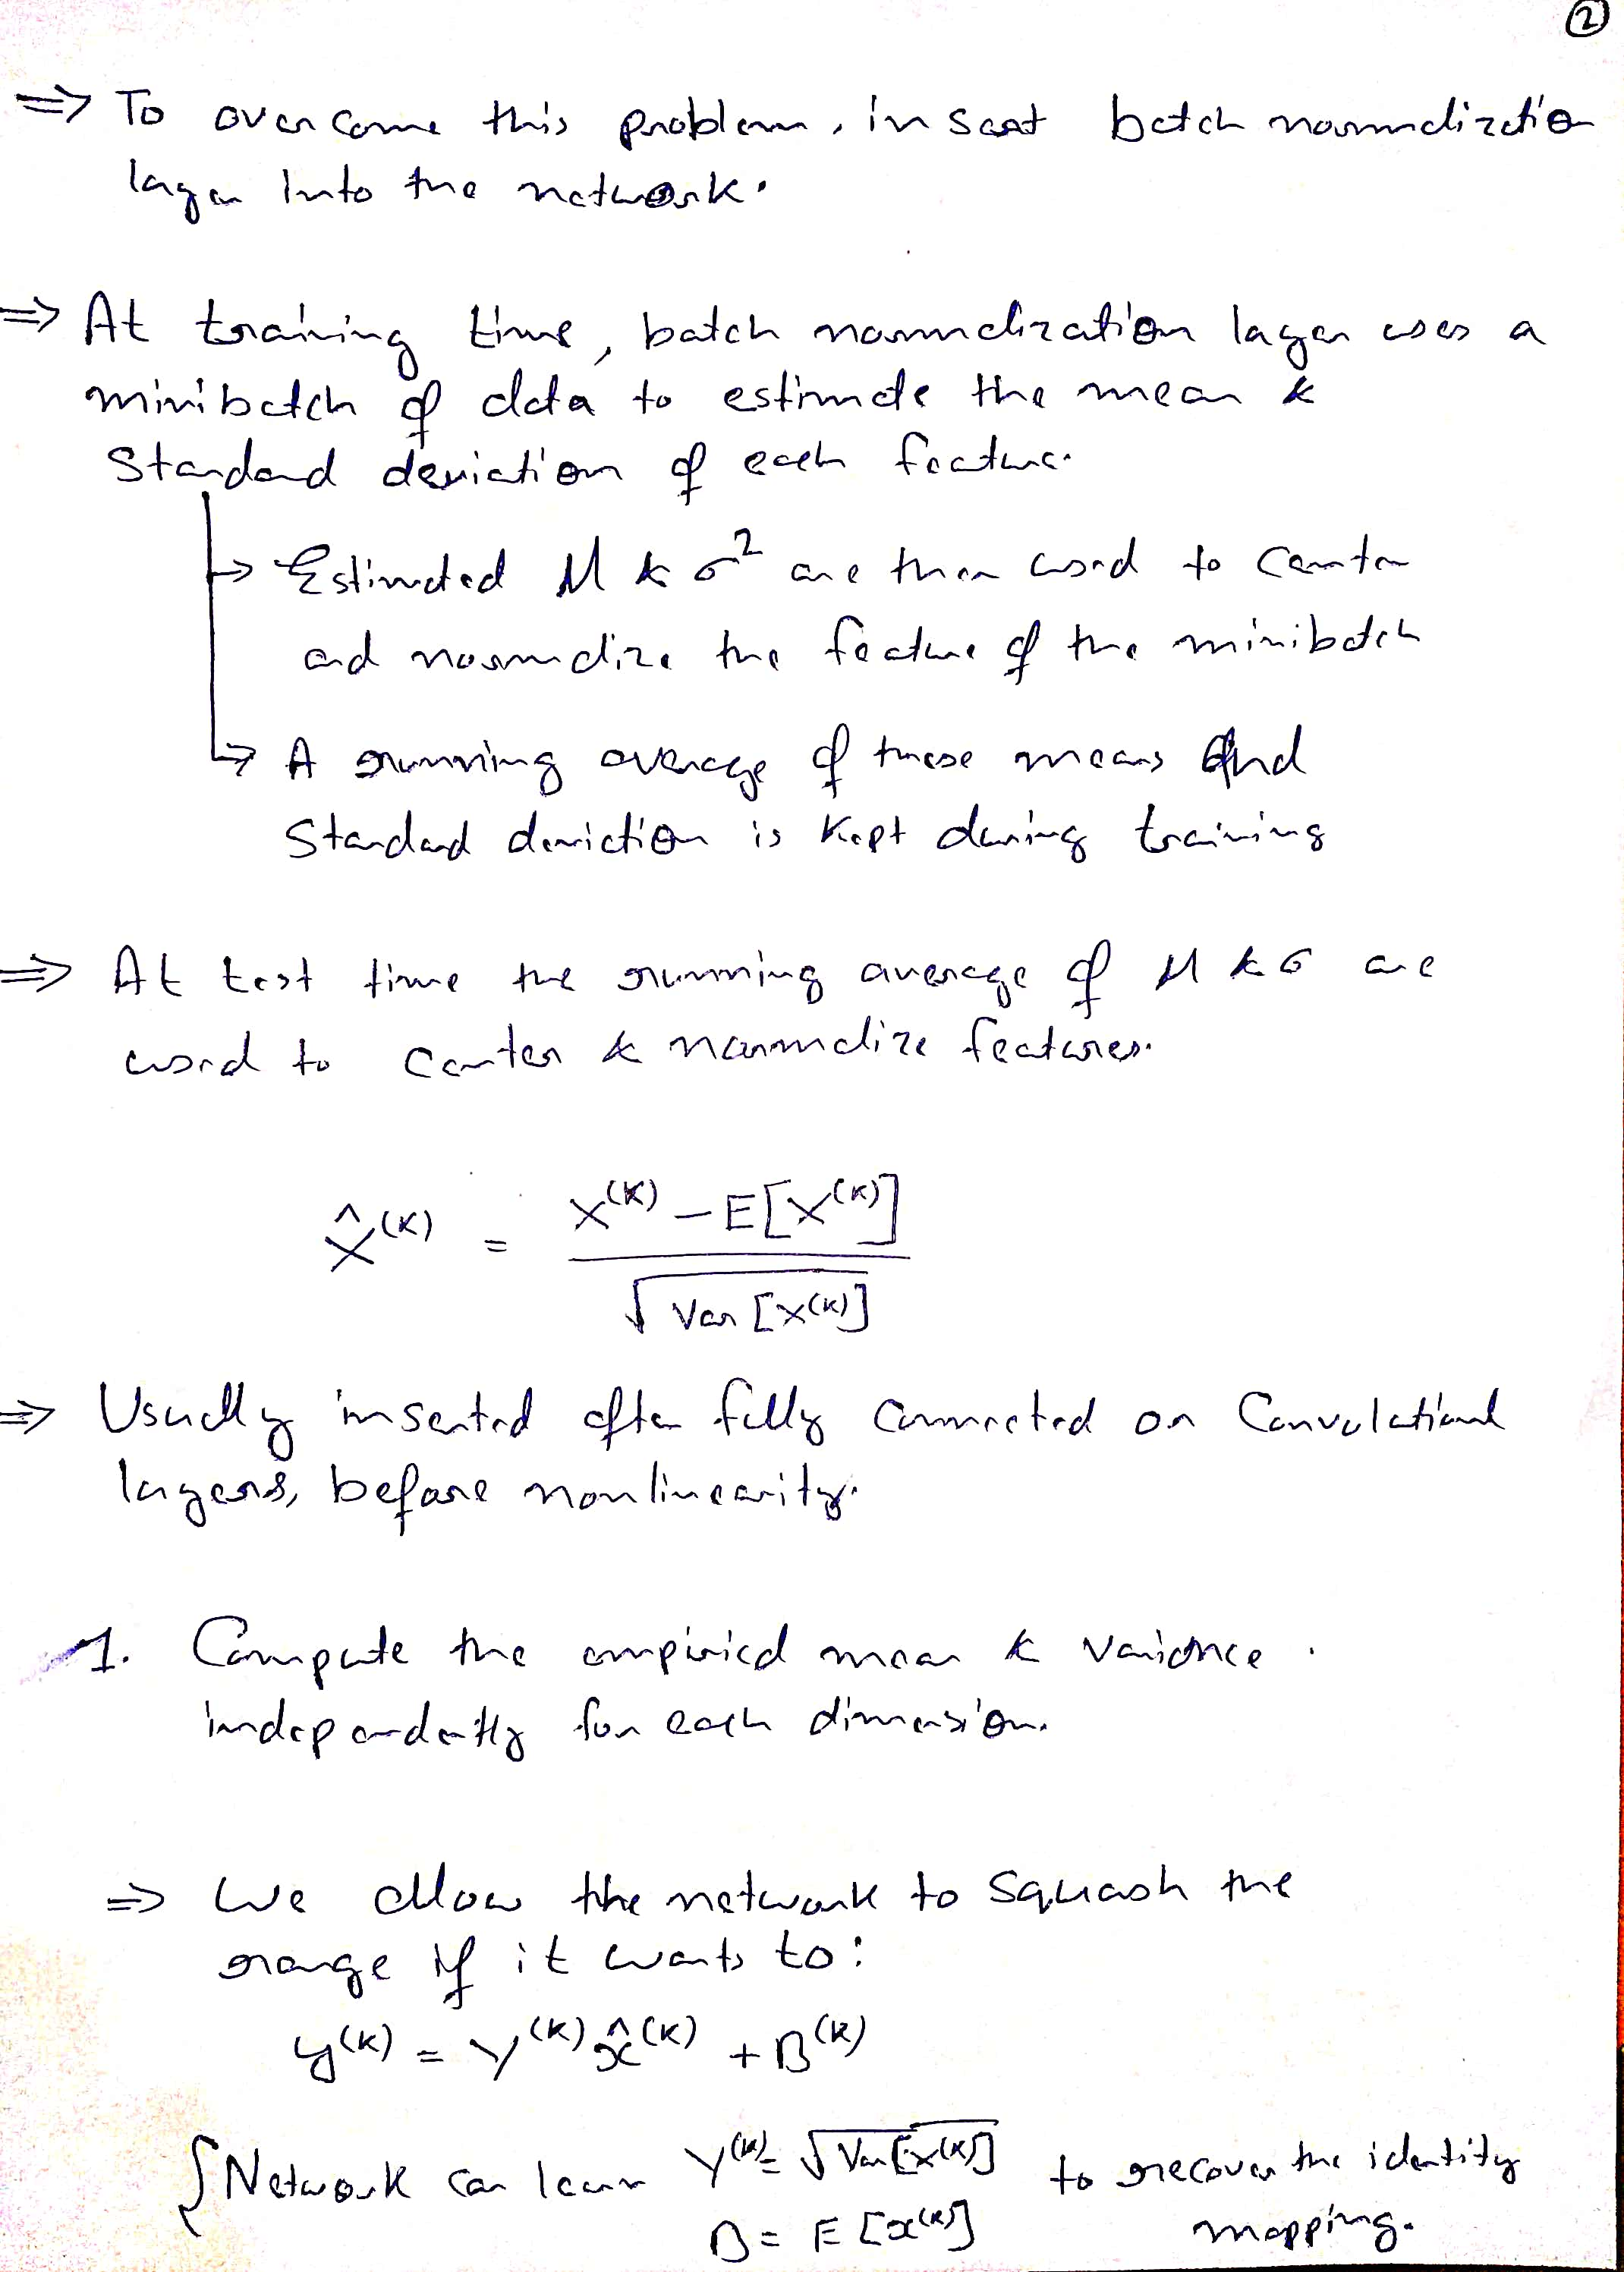 ②
⇒ To overcome this problem, insert batch normalization
layer Into the network.
⇒ At training time, batch normalization layer uses a
minibatch of data to estimate the mean &
Standard deviation of each feature.
→ Estimated μ & σ² are then used to center
and normalize the feature of the minibatch
→ A running average of these means and
Standard deviation is kept during training
⇒ At test time the running average of μ & σ are
used to center & normalize features.
x̂^(K) = (x^(K) - E[x^(K)]) / √Var[x^(K)]
⇒ Usually inserted after fully connected or Convolutional
layers, before nonlinearity.
1. Compute the empirical mean & variance
independently for each dimension.
⇒ We allow the network to squash the
range if it wants to:
y^(K) = γ^(K) x̂^(K) + β^(K)
Network can learn γ^(K) = √Var[x^(K)] to recover the identity
β = E[x^(K)] mapping.